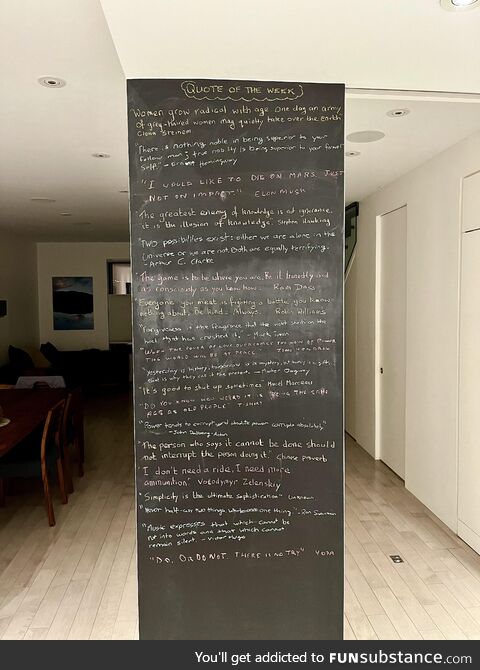 QUOTE OF THE WEEK
Women grow radical with age. One day an army
of grey-haired women may quietly take over the Earth
Gloria Steinem
"There is nothing noble in being superior to your
fellow man; true nobility is being superior to your former
self." - Ernest Hemingway
"I WOULD LIKE TO DIE ON MARS. JUST
NOT ON IMPACT" ELON MUSK
The greatest enemy of knowledge is not ignorance,
it is the illusion of knowledge. Stephen Hawking
"Two possibilities exist: either we are alone in the
Universe or we are not. Both are equally terrifying.
- Arthur C. Clarke
The game is to be where you are. Be it honestly and
as consciously as you know how. Ram Dass
"Everyone you meet is fighting a battle you know
nothing about. Be kind. Always. Robin Williams
"Forgiveness is the fragrance that the violet sheds on the
heel that has crushed it. - Mark Twain
THE POWER OF LOVE OVERCOMES THE LOVE OF POWER
THE WORLD WILL BE AT PEACE JIMI HENDRIX
"Yesterday is history, tomorrow is a mystery, but today is a gift,
that is why they call it the present. - Master Oogway
"It's good to shut up sometimes" Marcel Marceau
"DO YOU KNOW HOW WEIRD IT IS THE SAME
AGE AS OLD PEOPLE" T-SHIRT
"Power tends to corrupt and absolute power corrupts absolutely"
- John Dalberg-Acton
"The person who says it cannot be done should
not interrupt the person doing it." Chinese proverb
"I don't need a ride, I need more
ammunition." Volodymyr Zelenskiy
"Simplicity is the ultimate sophistication" Unknown
"Never half-ass two things whole ass one thing" - Ron Swanson
"Music expresses that which cannot be
put into words and that which cannot
remain silent. - Victor Hugo
"DO. OR DO NOT. THERE IS NO TRY" YODA
You'll get addicted to FUNsubstance.com